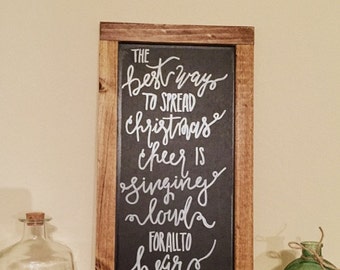 THE
best way
TO SPREAD
christmas
cheer IS
singing
loud
FOR ALL TO
hear